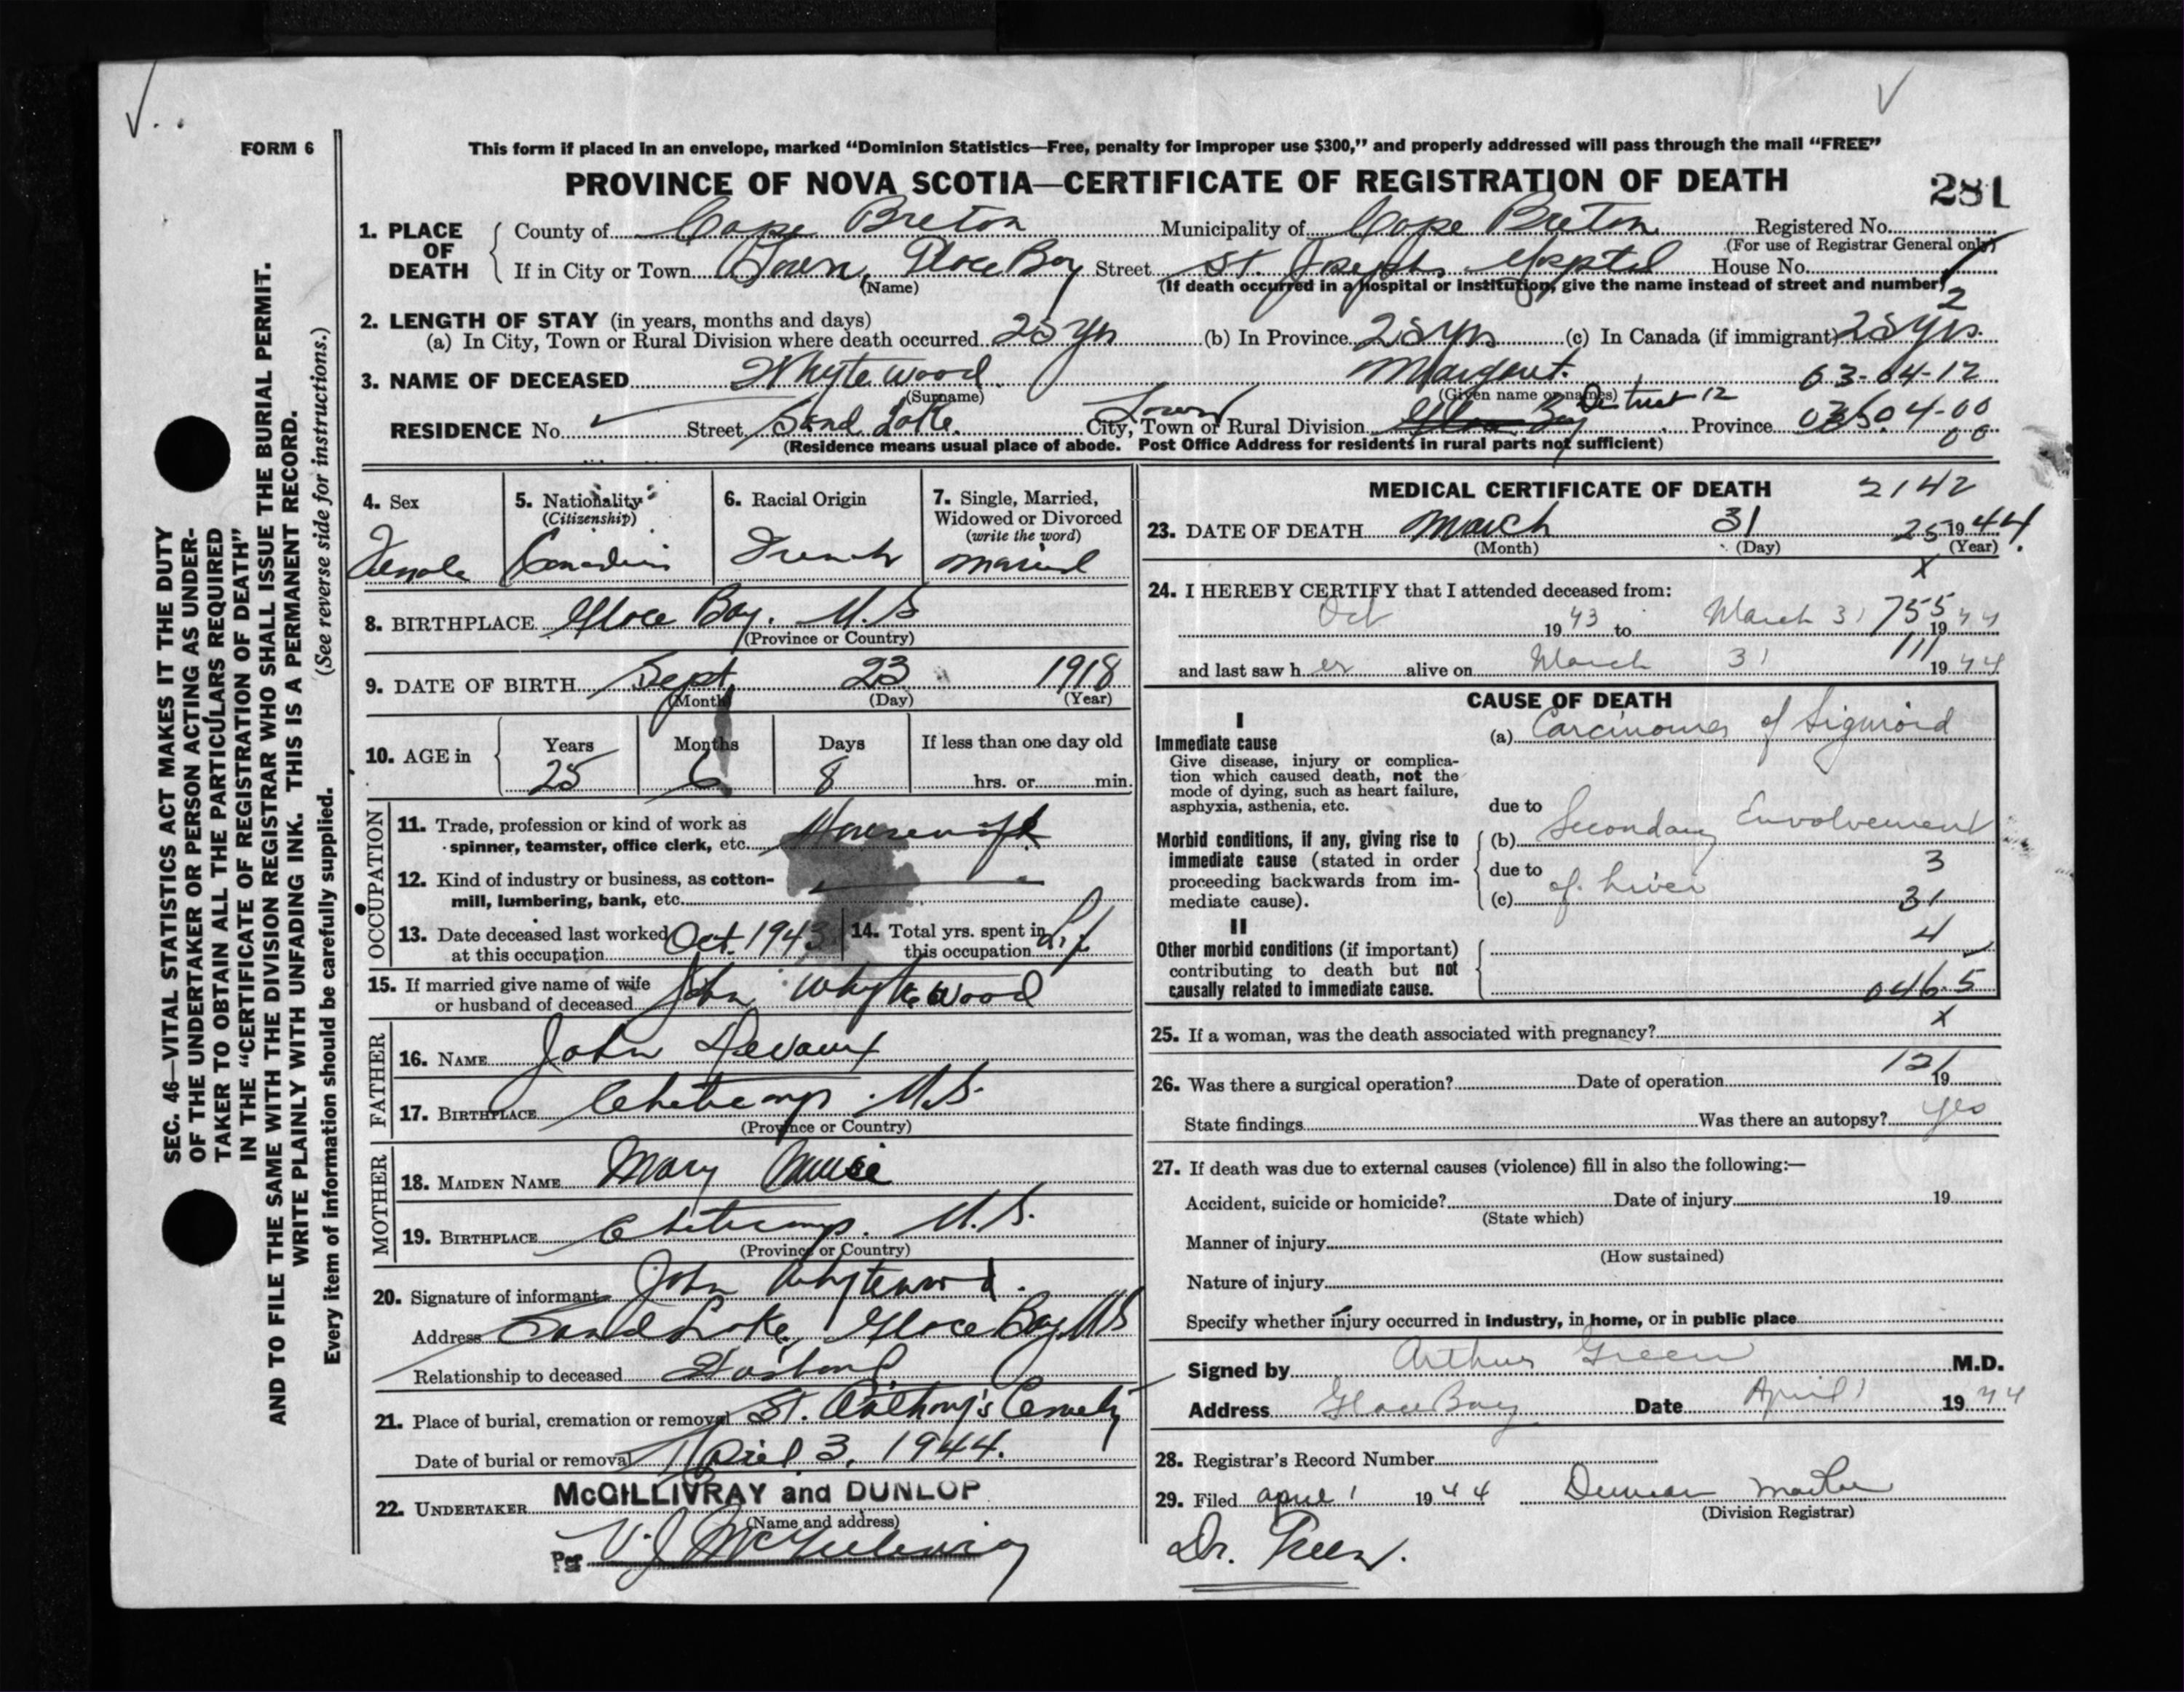 FORM 6
This form if placed in an envelope, marked “Dominion Statistics—Free, penalty for improper use $300,” and properly addressed will pass through the mail “FREE”
PROVINCE OF NOVA SCOTIA—CERTIFICATE OF REGISTRATION OF DEATH
281
1. PLACE OF DEATH
County of Cape Breton Municipality of Cape Breton Registered No.
(For use of Registrar General only)
If in City or Town Town, Glace Bay Street St. Josephs Hospital House No.
(Name) (If death occurred in a hospital or Institution, give the name instead of street and number)
2
2. LENGTH OF STAY (in years, months and days)
(a) In City, Town or Rural Division where death occurred 25 yrs (b) In Province 25 yrs (c) In Canada (if immigrant) 25 yrs.
3. NAME OF DECEASED Whytewood Margaret. 03-04-12
(Surname) (Given name or names)
District 12
RESIDENCE No. Street Sand Lake. City, Town or Rural Division Town Glace Bay Province 04-00
00
(Residence means usual place of abode. Post Office Address for residents in rural parts not sufficient)
4. Sex 5. Nationality (Citizenship) 6. Racial Origin 7. Single, Married, Widowed or Divorced (write the word)
Female Canadian French Married
8. BIRTHPLACE Glace Bay. N.S
(Province or Country)
9. DATE OF BIRTH Sept 23 1918
(Month) (Day) (Year)
10. AGE in Years Months Days If less than one day old
25 6 8 hrs. or min.
OCCUPATION
11. Trade, profession or kind of work as
spinner, teamster, office clerk, etc. Housewife
12. Kind of industry or business, as cotton-
mill, lumbering, bank, etc.
13. Date deceased last worked at this occupation Oct. 1943 14. Total yrs. spent in this occupation Life
15. If married give name of wife
or husband of deceased John Whytewood
FATHER
16. NAME John Devaux
17. BIRTHPLACE Cheticamp. N.S.
(Province or Country)
MOTHER
18. MAIDEN NAME Mary
19. BIRTHPLACE Cheticamp. N.S.
(Province or Country)
20. Signature of informant John Whytewood.
Address Sand Lake, Glace Bay, N.S
Relationship to deceased Husband
21. Place of burial, cremation or removal St. Anthony's Cemetery
Date of burial or removal April 3, 1944.
22. UNDERTAKER McGILLIVRAY and DUNLOP
(Name and address)
Per V. J. McGillivray
MEDICAL CERTIFICATE OF DEATH 2142
23. DATE OF DEATH March 31 25 1944
(Month) (Day) (Year)
x
24. I HEREBY CERTIFY that I attended deceased from:
Oct 1943 to March 31 755 1944
111
and last saw her alive on March 31 1944
CAUSE OF DEATH
I
Immediate cause
Give disease, injury or complica-
tion which caused death, not the
mode of dying, such as heart failure,
asphyxia, asthenia, etc.
(a) Carcinoma of Sigmoid
due to
Morbid conditions, if any, giving rise to
immediate cause (stated in order
proceeding backwards from im-
mediate cause).
(b) Secondary Envolvement
due to 3
(c) of Liver 31
II
4
Other morbid conditions (if important)
contributing to death but not
causally related to immediate cause.
046.5
25. If a woman, was the death associated with pregnancy? x
121
26. Was there a surgical operation? Date of operation 19
State findings Was there an autopsy? yes
27. If death was due to external causes (violence) fill in also the following:—
Accident, suicide or homicide? Date of injury 19
(State which)
Manner of injury
(How sustained)
Nature of injury
Specify whether injury occurred in industry, in home, or in public place
Signed by Arthur Green M.D.
Address Glace Bay Date April 1 1944
28. Registrar's Record Number
29. Filed April 1 1944 Duncan
(Division Registrar)
Dr. Green.
SEC. 46—VITAL STATISTICS ACT MAKES IT THE DUTY
OF THE UNDERTAKER OR PERSON ACTING AS UNDER-
TAKER TO OBTAIN ALL THE PARTICULARS REQUIRED
IN THE “CERTIFICATE OF REGISTRATION OF DEATH”
AND TO FILE THE SAME WITH THE DIVISION REGISTRAR WHO SHALL ISSUE THE BURIAL PERMIT.
WRITE PLAINLY WITH UNFADING INK. THIS IS A PERMANENT RECORD.
Every item of information should be carefully supplied. (See reverse side for instructions.)